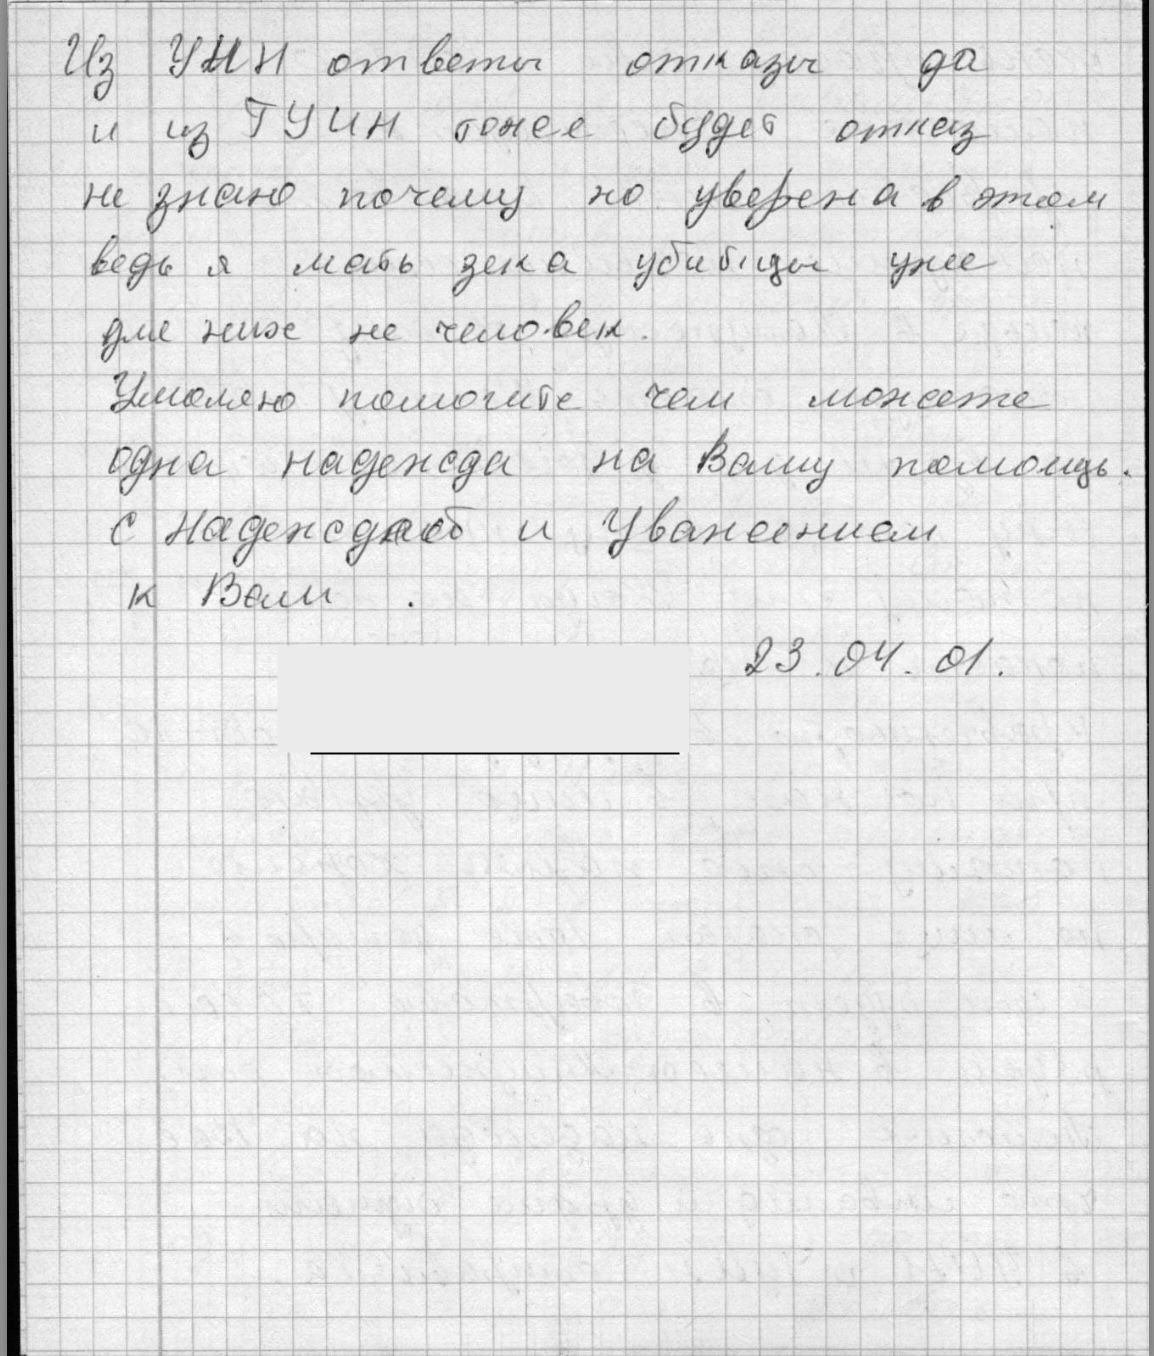 Из УИН ответы отказы да
и из ГУИН тоже будет отказ
не знаю почему но уверена в этом
ведь я мать зека убийцы уже
для них не человек.
Умоляю помогите чем можете
одна надежда на Вашу помощь.
С Надеждой и Уважением
к Вам .
23.04.01.